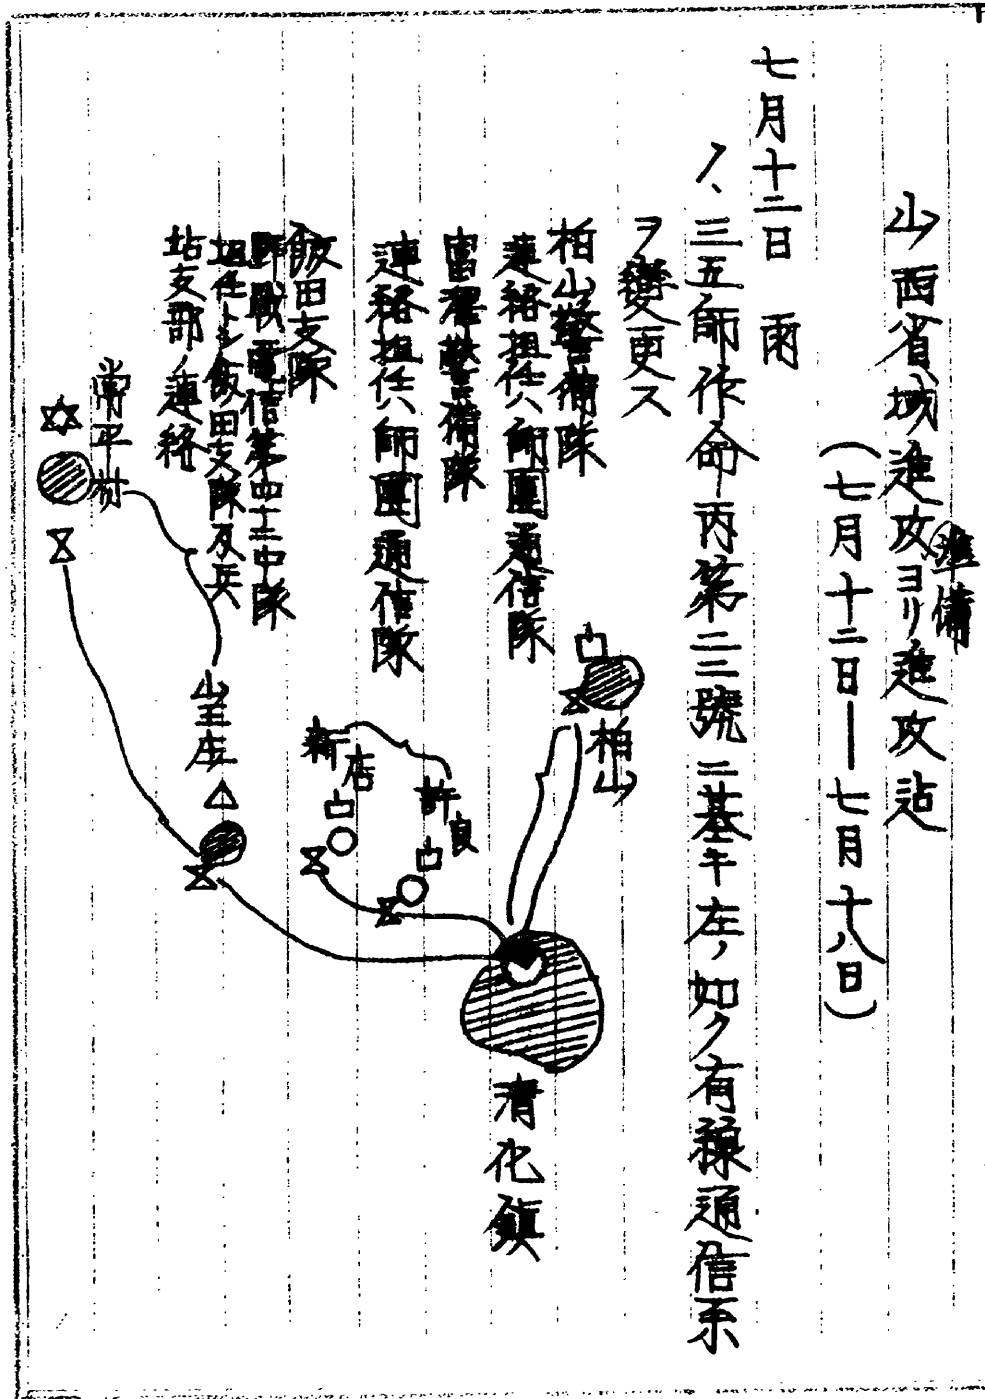 山西省域進攻ヨリ進攻站
準備
(七月十二日―七月十八日)
七月十二日 雨
1、三五師作命丙第二二號ニ基キ左ノ如ク有線通信系
ヲ變更ス
柏山警備隊
連絡担任ハ師團通信隊
警備隊
連絡担任ハ師團通信隊
飯田支隊
野戰電信第四十三中隊
担任トシ飯田支隊及兵
站支部ノ連絡
柏山
許良
新店
山王庄
常平村
清化鎮